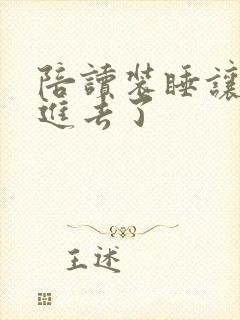 陪讀裝睡讓
進去了
王述